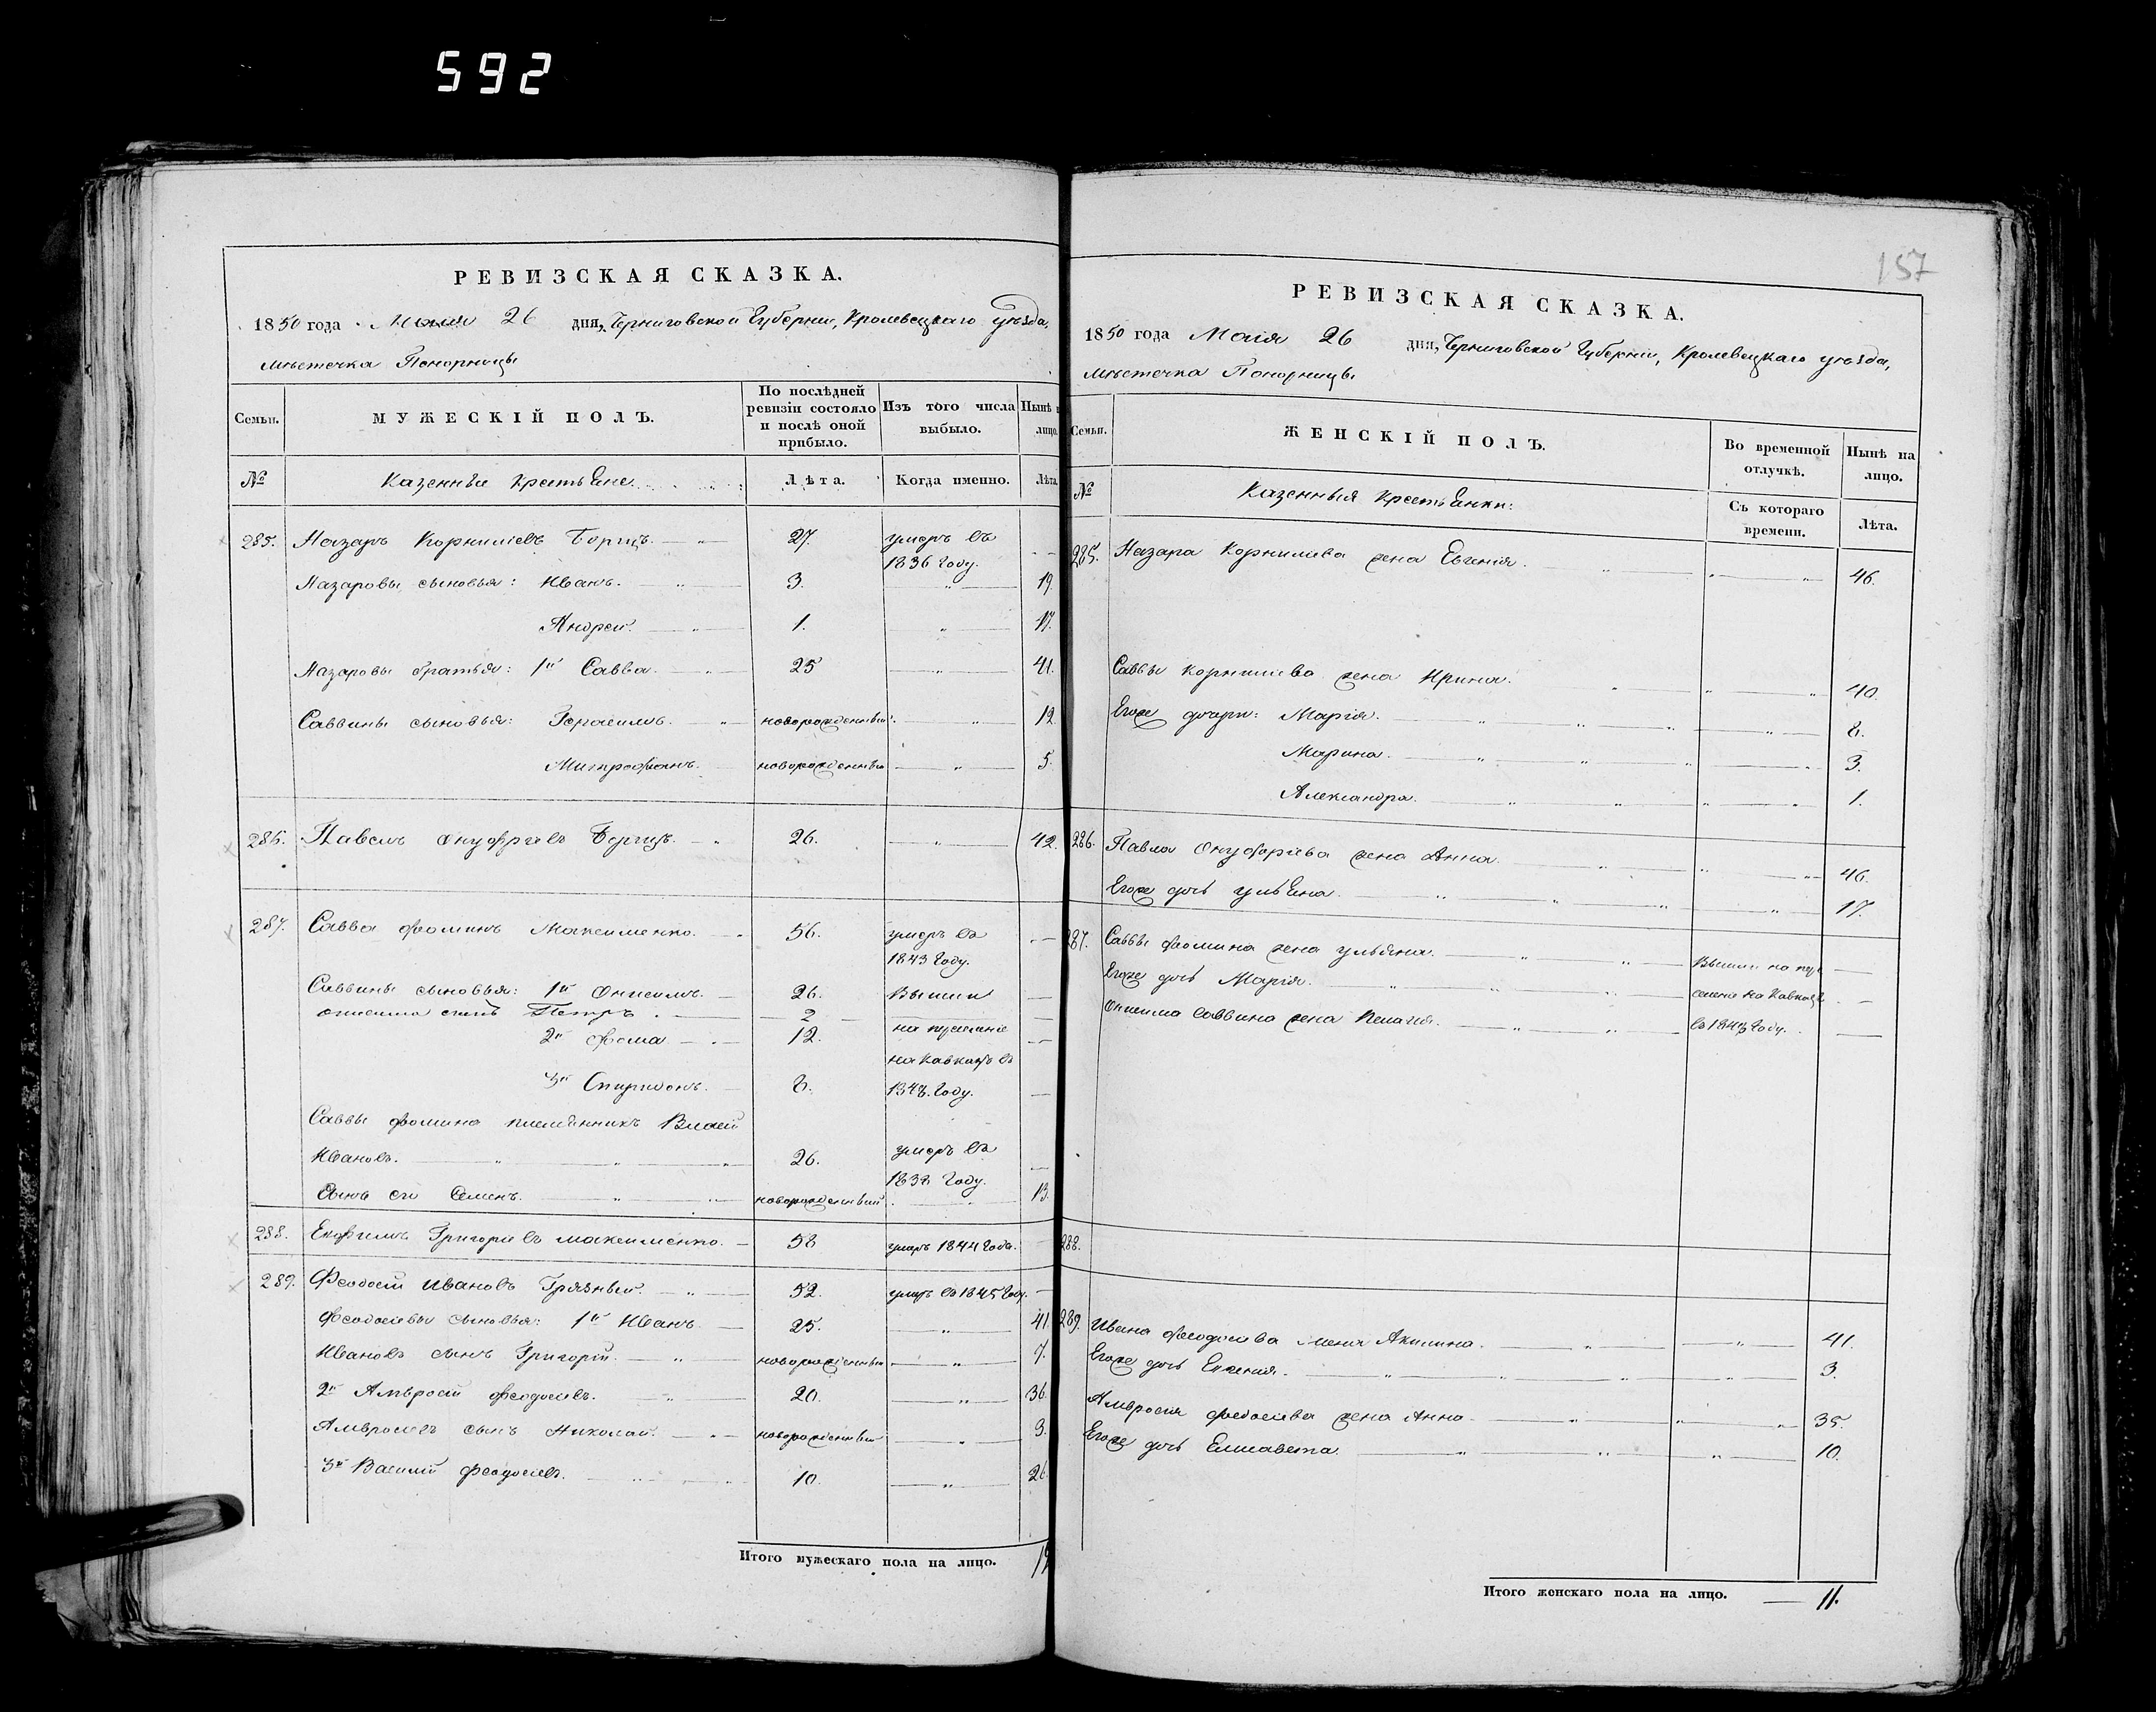 592
РЕВИЗСКАЯ СКАЗКА.
1850 года Маія 26 дня, Черниговской Губерніи, Кролевецкаго уѣзда,
мѣстечка Понорницы
Семьи. МУЖЕСКІЙ ПОЛЪ. По послѣдней ревизіи состояло и послѣ оной прибыло. Изъ того числа выбыло. Нынѣ лицо.
№ Казенные крестьяне Лѣта. Когда именно. Лѣта.
285. Назаръ Корниліевъ Борщъ. 27. умеръ въ
1836 году.
Назаровы сыновья: Иванъ. 3. 19.
Андрей. 1. 17.
Назаровы братья: 1й Савва. 25 41.
Саввины сыновья: Герасимъ. новорожденный 12.
Митрофанъ. новорожденный 5.
286. Павелъ Онуфріевъ Борщъ. 26. 42.
287. Савва Фоминъ Максименко. 56. умеръ въ
1843 году.
Саввины сыновья: 1й Онисимъ. 26. Вышли
Онисима сынъ Петръ. 2
2й Фома 12. на переселеніе
на Кавказъ въ
3й Спиридонъ. 8. году.
Саввы Фомина племянникъ Власій
Ивановъ. 26. умеръ въ
году.
Сынъ его Семенъ. новорожденный 13.
288. Григоріевъ Максименко. 58 умеръ 1844 года.
289. Феодосій Ивановъ Грязный. 52. умеръ въ 1845 году.
Феодосіевы сыновья: 1й Иванъ 25. 41.
Ивановъ сынъ Григорій. новорожденный 7.
2й Амвросій Феодосіевъ. 20. 36.
Амвросіевъ сынъ Николай. новорожденный 9.
3й Василій Феодосіевъ. 10. 26.
Итого мужескаго пола на лицо.
157
РЕВИЗСКАЯ СКАЗКА.
1850 года Маія 26 дня, Черниговской Губерніи, Кролевецкаго уѣзда,
мѣстечка Понорницы
Семьи. ЖЕНСКІЙ ПОЛЪ. Во временной отлучкѣ. Нынѣ на лицо.
№ Казенныя крестьянки: Съ котораго времени. Лѣта.
285. Назара Корнилиева жена Евгенія. 46.
Саввы Корнилиева жена Ирина. 40.
Егоже дочери: Марія. 8.
Марина. 3.
Александра. 1.
286. Павла Онуфріева жена Анна. 46.
Егоже дочь Ульяна. 17.
287. Саввы Фомина жена Ульяна. Вышли на пере
Егоже дочь Марія. селеніе на Кавказъ
Онисима Саввина жена Пелагія. въ году.
288.
289. Ивана Феодосіева жена Акилина. 41.
Егоже дочь Евгенія. 3.
Амвросія Феодосіева жена Анна. 35.
Егоже дочь Елисавета. 10.
Итого женскаго пола на лицо. 11.